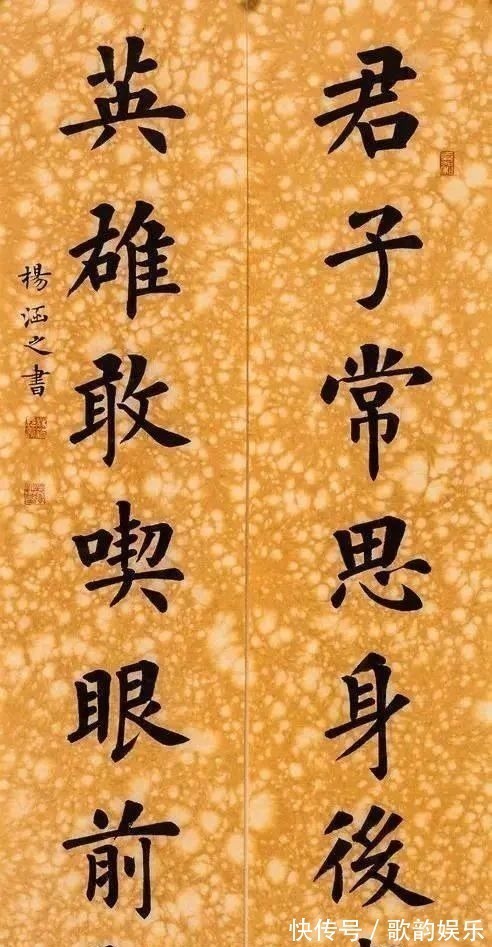 君子常思身後
英雄敢喫眼前
楊涵之書
快传号/歌韵娱乐